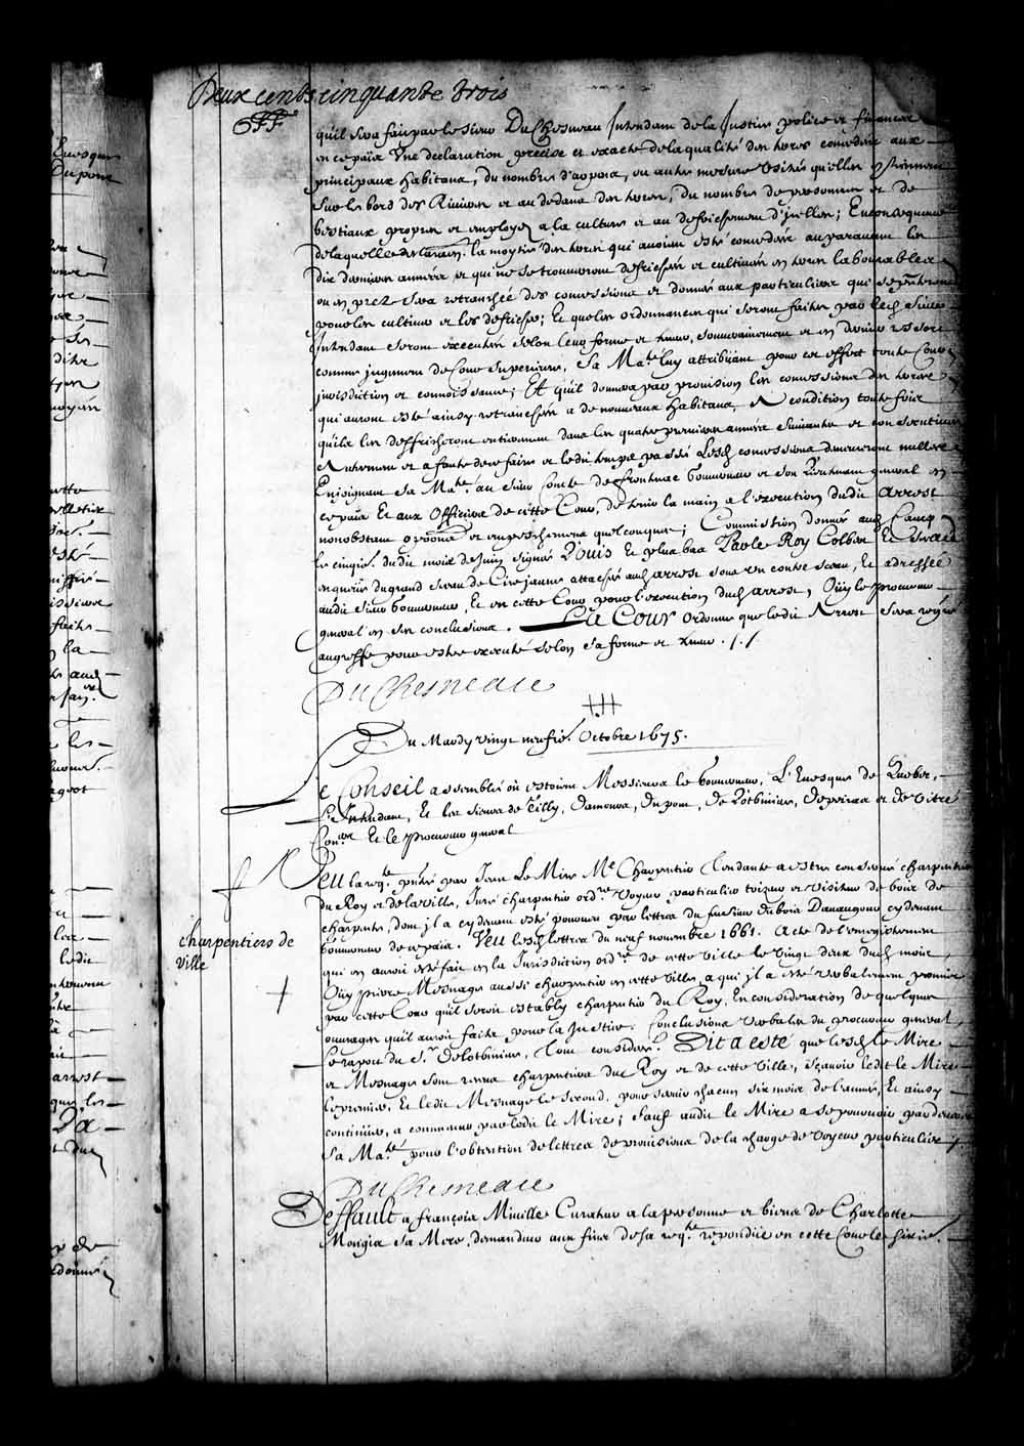 Deux cents cinquante trois
qu'il sera fait par le sieur DuChesneau Intendant de la Justice police et finances
en ce païs Une declaration precise et exacte de la qualité des terres concedées aux
principaux habitans, du nombre d'arpens, ou autre mesure usitée qu'elles contiennent
sur le bord des Rivieres et au dedans des terres, du nombre de personnes et de
bestiaux propres et employez a la culture et au defrichement d'jcelles; En consequence
de laquelle declaraon. la moytié des terres qui avoient esté concedées auparavant les
dix dernieres années et qui ne se trouveront defrichées et cultivées en terres labourables
ou en prez sera retranchée des concessions et donnée aux particuliers qui se pnteront
pour les cultiver et les defricher; Et que les ordonnances qui seront faites par led. sieur
Intendant seront executées selon leur forme et teneur, souverainement et en dernier ressort
comme jugemens de Cour superieure, Sa Mate. luy attribuant pour cet effect toute Cour
jurisdiction et connoissance; Et qu'il donnera par provision les concessions des terres
qui auront esté ainsy retranchées a de nouveaux habitans, A condition toutefois
qu'ils les deffricheront entierement dans les quatre premieres années suivantes et consecutives
Autrement et a faute de ce faire et ledit temps passé Lesd. concessions demeureront nulles
Enjoignant sa Mate. au sieur Comte de frontenac Gouverneur et son Lieutenant general en
ce païs Et aux Officiers de cette Cour, de tenir la main a l'execution dudit Arrest
nonobstant opposions. et empeschemens quelconques; Commission donnée aud. Camp
le cinqie. dudit mois de Juin signée Louis Et plus bas Par le Roy Colbert Et scellé
en queüe du grand sceau de Cire jaune attachée aud. arrest sous un contre sceau, Et adressée
audit sieur Gouverneur, Et en cette Cour pour l'execution dud. arrest, Oüy le procureur
general en ses conclusions. La Cour ordonne que ledit Arrest sera regré
au greffe pour estre executé selon sa forme et teneur ././
DuChesneau
Du Mardy vingt neufie. Octobre 1675.
Le Conseil assemblé où estoient Messieurs le Gouverneur, L'Evesque de Quebec,
L'Intendant, Et les sieurs de Tilly, Damours, Dupont, De Lotbiniere, Depeiras et de Vitré
Coners. Et le procureur general
Veu la reqte. pntée par Jean Le Mire Me Charpentier Tendante a estre conservé charpentier
du Roy et de la Ville, Juré charpentier ordre. Voyeur particulier toizeur et visiteur de bois de
charpente, dont jl a cy devant esté pourveu par lettres du feu sieur Dubois Davaugour cy devant
Gouverneur de ce païs. Veu lesd. lettres du neuf novembre 1661. Acte de l'enregistrement
charpentiers de
ville
qui en auroit esté fait en la Jurisdiction ordre. de cette ville le vingt deux dud. mois,
Oüy pierre Mesnage aussi charpentier en cette Ville, a qui jl a esté verbalement promis
par cette Cour qu'il seroit estably charpentier du Roy, En consideration de quelques
ouvrages qu'il auroit faits pour la Justice. Conclusions verbales du procureur general,
Le rapor du Sr. de Lotbiniere, Tout consideré. Dit a esté que lesd. le Mire
et Mesnage sont receus charpentiers du Roy et de cette Ville, sçavoir ledit le Mire
le premier, Et ledit Mesnage le second. pour servir chacun six mois de l'année, Et ainsy
continuer, a commencer par ledit le Mire; sauf audit le Mire a se pourvoir par devers
sa Mate. pour l'obtention de lettres de provisions de la charge de voyeur particulier
DuChesneau
Deffault a françois Miville Curateur a la personne et biens de Charlotte
Mongis sa Mere, demandeur aux fins de sa reqte. repondüe en cette Cour le sixie.